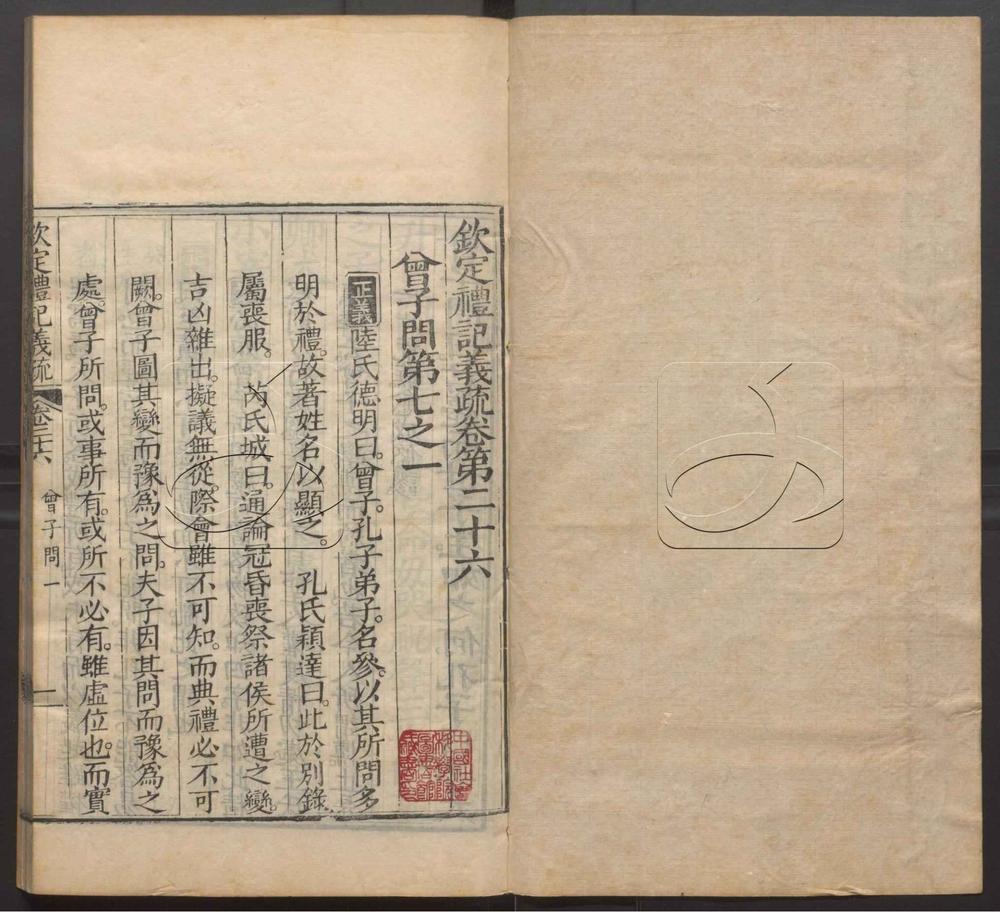 欽定禮記義疏卷第二十六
曾子問第七之一
正義陸氏德明曰。曾子。孔子弟子。名參。以其所問多
明於禮。故著姓名以顯之。 孔氏穎達曰。此於別錄
屬喪服。 芮氏城曰。通論冠昏喪祭諸侯所遭之變。
吉凶雜出。擬議無從。際會雖不可知。而典禮必不可
闕。曾子圖其變而豫為之問。夫子因其問而豫為之
處。曾子所問。或事所有。或所不必有。雖虛位也。而實
欽定禮記義疏 卷二十六 曾子問一 一